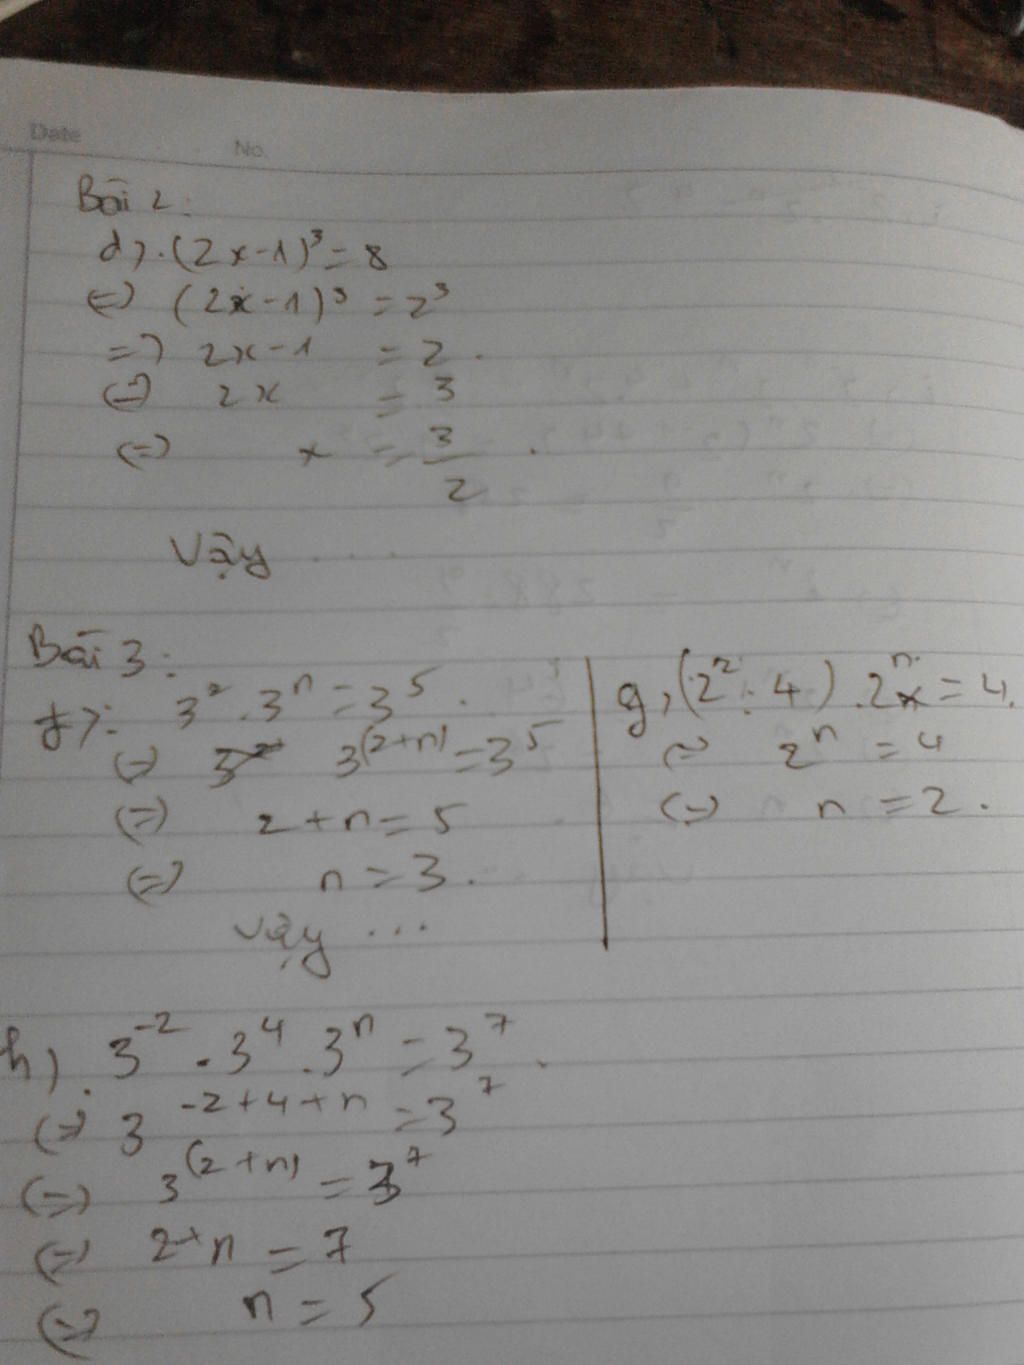 Date
No.
Bài 2:
d). (2x-1)³ = 8
(=) (2x-1)³ = 2³
=) 2x-1 = 2.
(=) 2x = 3
(=) x = 3/2.
Vậy ....
Bài 3:
f): 3² . 3ⁿ = 3⁵.
(=) 3^(2+n) = 3⁵
(=) 2+n = 5
(=) n = 3.
Vậy ...
g, (2² : 4) . 2ⁿ = 4.
(=) 2ⁿ = 4
(=) n = 2.
h). 3⁻² . 3⁴ . 3ⁿ = 3⁷.
(=) 3^-2+4+n = 3⁷
(=) 3^(2+n) = 3⁷
(=) 2+n = 7
(=) n = 5